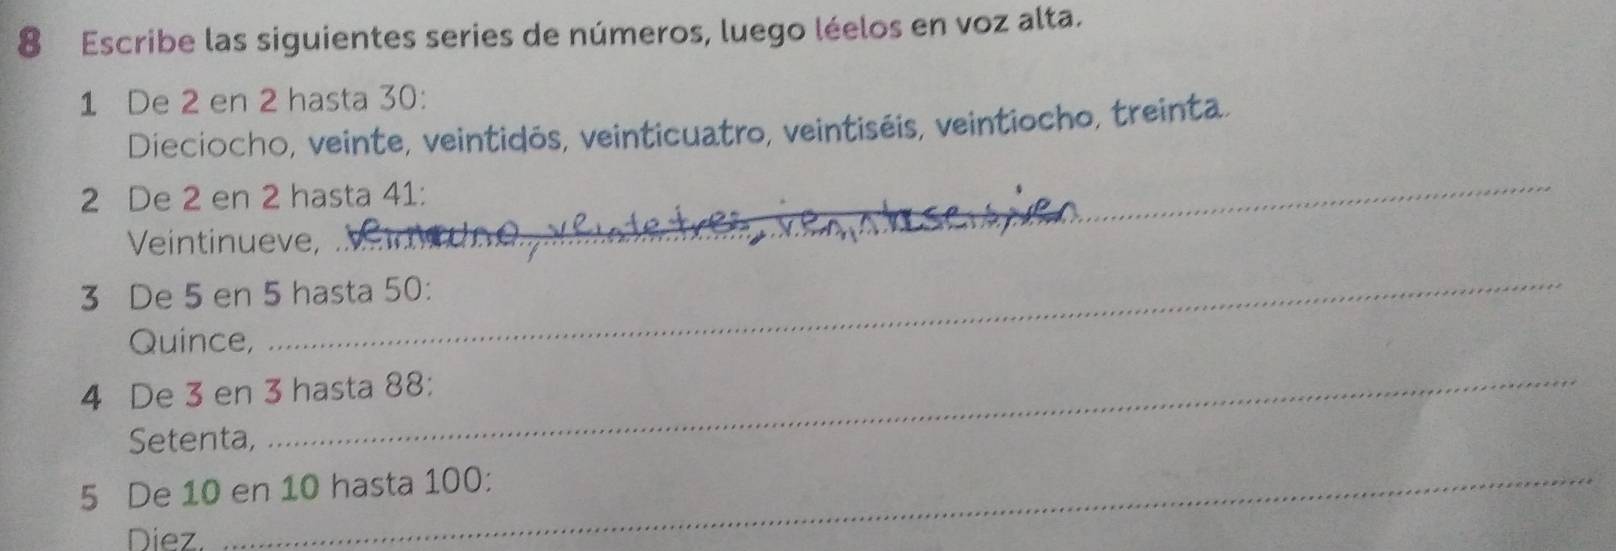 8 Escribe las siguientes series de números, luego léelos en voz alta.
1 De 2 en 2 hasta 30:
Dieciocho, veinte, veintidós, veinticuatro, veintiséis, veintiocho, treinta.
2 De 2 en 2 hasta 41:
Veintinueve,
3 De 5 en 5 hasta 50:
Quince,
4 De 3 en 3 hasta 88:
Setenta,
5 De 10 en 10 hasta 100:
Diez,